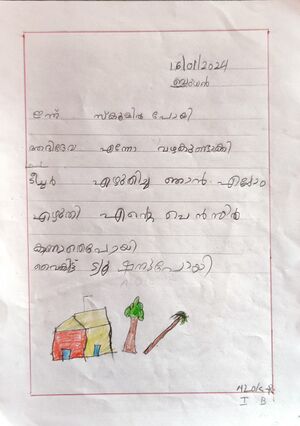 16/01/2024
ബുധൻ
ഇന്ന് സ്കൂളിൽ പോയി
എന്നോ വഴക്കുണ്ടാക്കി
ടീച്ചർ എഴുതിച്ച ഞാൻ എല്ലാം
എഴുതി എന്റെ പെൻസിൽ
കാണാതെപോയി
വൈകിട്ട് പോയി
I B